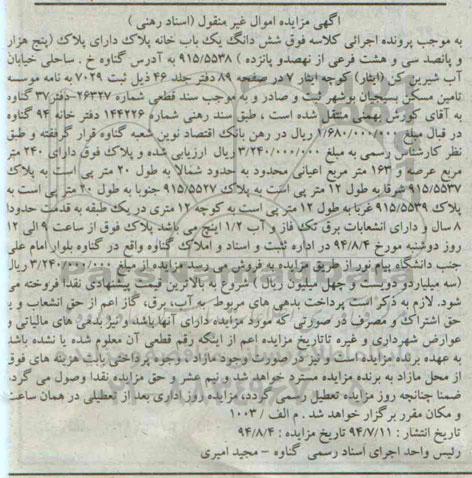 آگهی مزایده اموال غیر منقول (اسناد رهنی )
به موجب پرونده اجرائی کلاسه فوق شش دانگ یک باب خانه پلاک دارای پلاک (پنج هزار
و پانصد سی و هشت فرعی از نهصدو پانزده ) ۹۱۵/۵۵۳۸ به آدرس گناوه خ . ساحلی خیابان
آب شیرین کن (ایثار) کوچه ایثار ۷ در صفحه ۸۹ دفتر جلد ۴۶ ذیل ثبت ۷۰۲۹ به نامه موسسه
تامین مسکن بسیجیان بوشهر ثبت و صادر و به موجب سند قطعی شماره ۲۶۳۲۷-دفتر۳۷ گناوه
به آقای کورش بهمنی منتقل شده است ، طبق سند رهنی شماره ۱۴۴۲۲۶ دفتر خانه ۹۴ گناوه
در قبال مبلغ ۱/۶۸۰/۰۰۰/۰۰۰ ریال در رهن بانک اقتصاد نوین شعبه گناوه قرار گرفته و طبق
نظر کارشناس رسمی به مبلغ ۳/۲۴۰/۰۰۰/۰۰۰ ریال ارزیابی شده و پلاک فوق دارای ۲۴۰ متر
مربع عرصه و ۱۶۳ متر مربع اعیانی محدود به حدود شمالا به طول ۲۰ متر پی است به پلاک
۹۱۵/۵۵۳۷ شرقا به طول ۱۲ متر پی است به پلاک ۹۱۵/۵۵۲۷ جنوبا به طول ۲۰ متر پی است به
پلاک ۹۱۵/۵۵۳۹ غربا به طول ۱۲ متر پی است به کوچه ۱۲ متری در یک طبقه به قدمت حدودا
۸ سال و دارای انشعابات برق تک فاز و آب ۱/۲ اینچ می باشد پلاک فوق از ساعت ۹ الی ۱۲
روز دوشنبه مورخ ۹۴/۸/۴ در اداره ثبت و اسناد و املاک گناوه واقع در گناوه بلوار امام علی
جنب دانشگاه پیام نور از طریق مزایده به فروش می رسد مزایده از مبلغ ۳/۲۴۰/۰۰۰/۰۰۰ ریال
(سه میلیاردو دویست و چهل میلیون ریال ) شروع به بالاترین قیمت پیشنهادی نقدا فروخته می
شود. لازم به ذکر است پرداخت بدهی های مربوط به آب، برق، گاز اعم از حق انشعاب و یا
حق اشتراک و مصرف در صورتی که مورد مزایده دارای آنها باشد و نیز بدهی های مالیاتی و
عوارض شهرداری و غیره تاتاریخ مزایده اعم از اینکه رقم قطعی آن معلوم شده یا نشده باشد
به عهده برنده مزایده است و نیز در صورت وجود مازاد، وجوه پرداختی بابت هزینه های فوق
از محل مازاد به برنده مزایده مسترد خواهد شد و نیم عشر و حق مزایده نقدا وصول می گردد
ضمنا چنانچه روز مزایده تعطیل رسمی گردد، مزایده روز اداری بعد از تعطیلی در همان ساعت
و مکان مقرر برگزار خواهد شد . م الف / ۱۰۰۳
تاریخ انتشار : ۹۴/۷/۱۱ تاریخ مزایده : ۹۴/۸/۴
رئیس واحد اجرای اسناد رسمی گناوه – مجید امیری